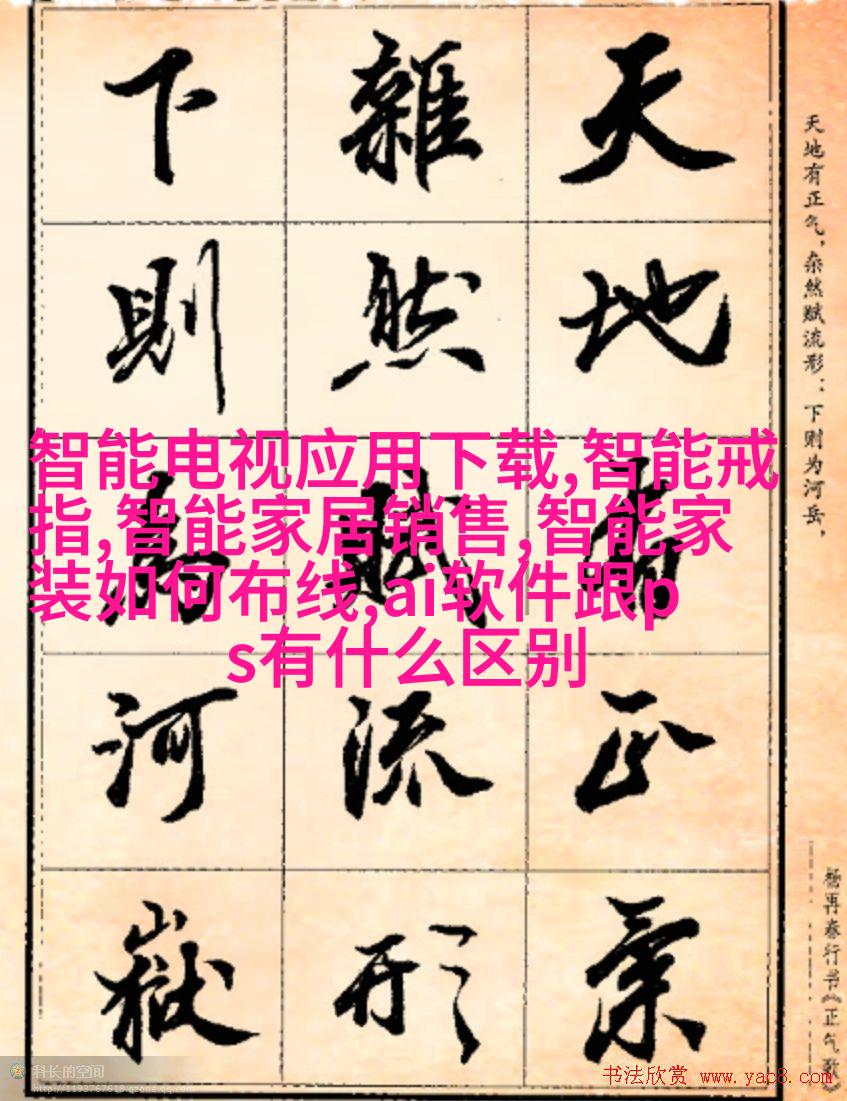 天地有正氣
雜然賦流形
下則為河嶽
天地有正气，杂然赋流形：下则为河岳，
杨再春行书《正气歌》
智能电视应用下载,智能戒
指,智能家居销售,智能家
装如何布线,ai软件跟p
s有什么区别
科长的空间
http://1193767618.qzone.qq.com
书法欣赏 www.yac8.com